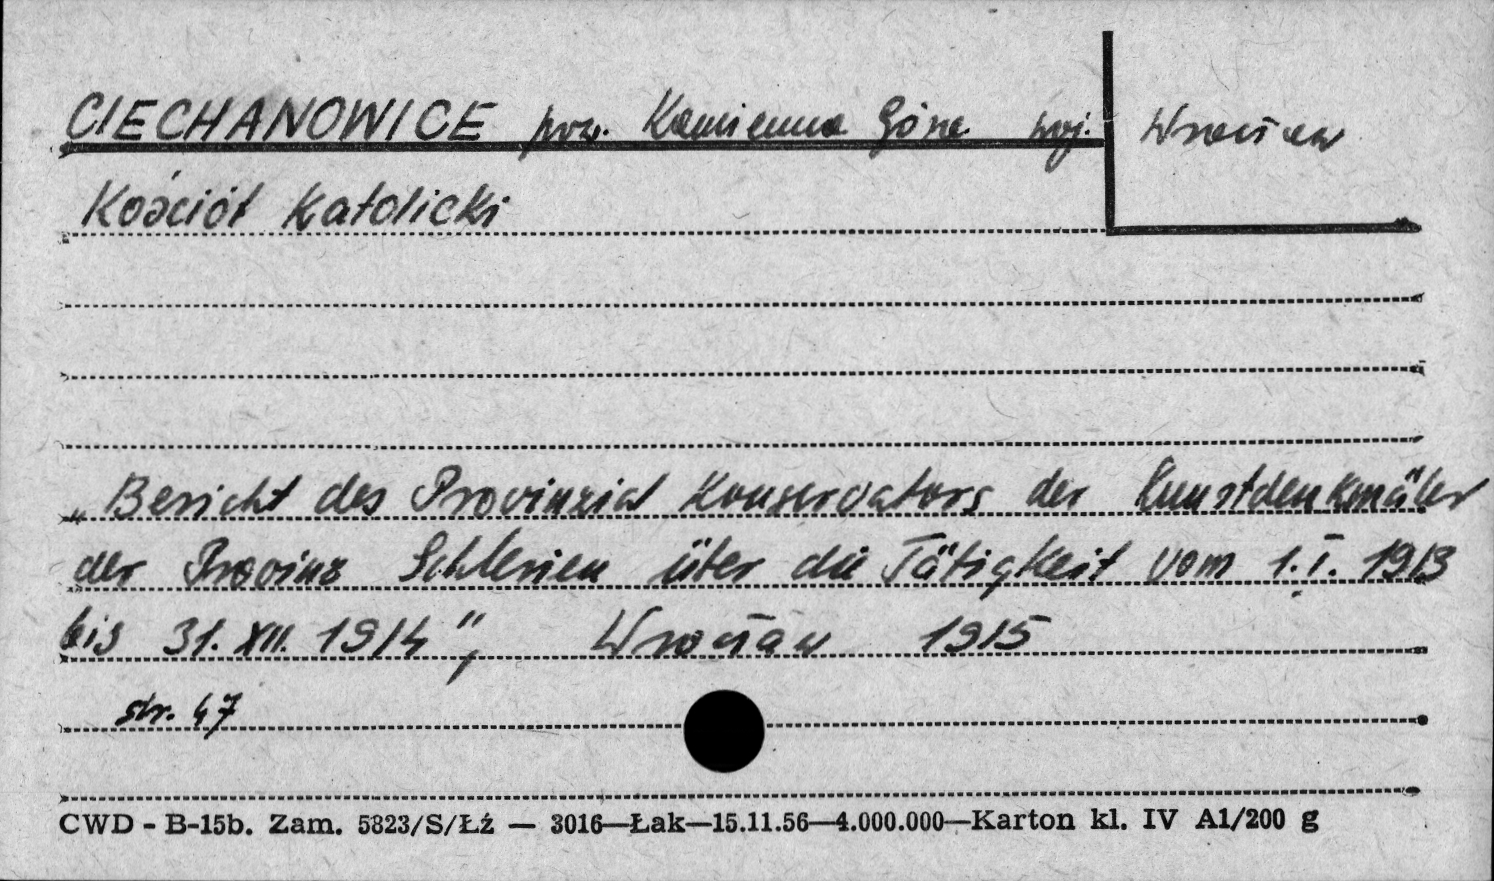 CIECHANOWICE pow. Kamienna Góra woj. Wrocław
Kościół Katolicki
„Bericht des Provinzial Konservators der Kunstdenkmäler
der Provinz Schlesien über die Tätigkeit vom 1.I. 1913
bis 31. XII. 1914", Wrocław 1915
str. 47
CWD - B-15b. Zam. 5823/S/Łź — 3016—Łak—15.11.56—4.000.000—Karton kl. IV A1/200 g